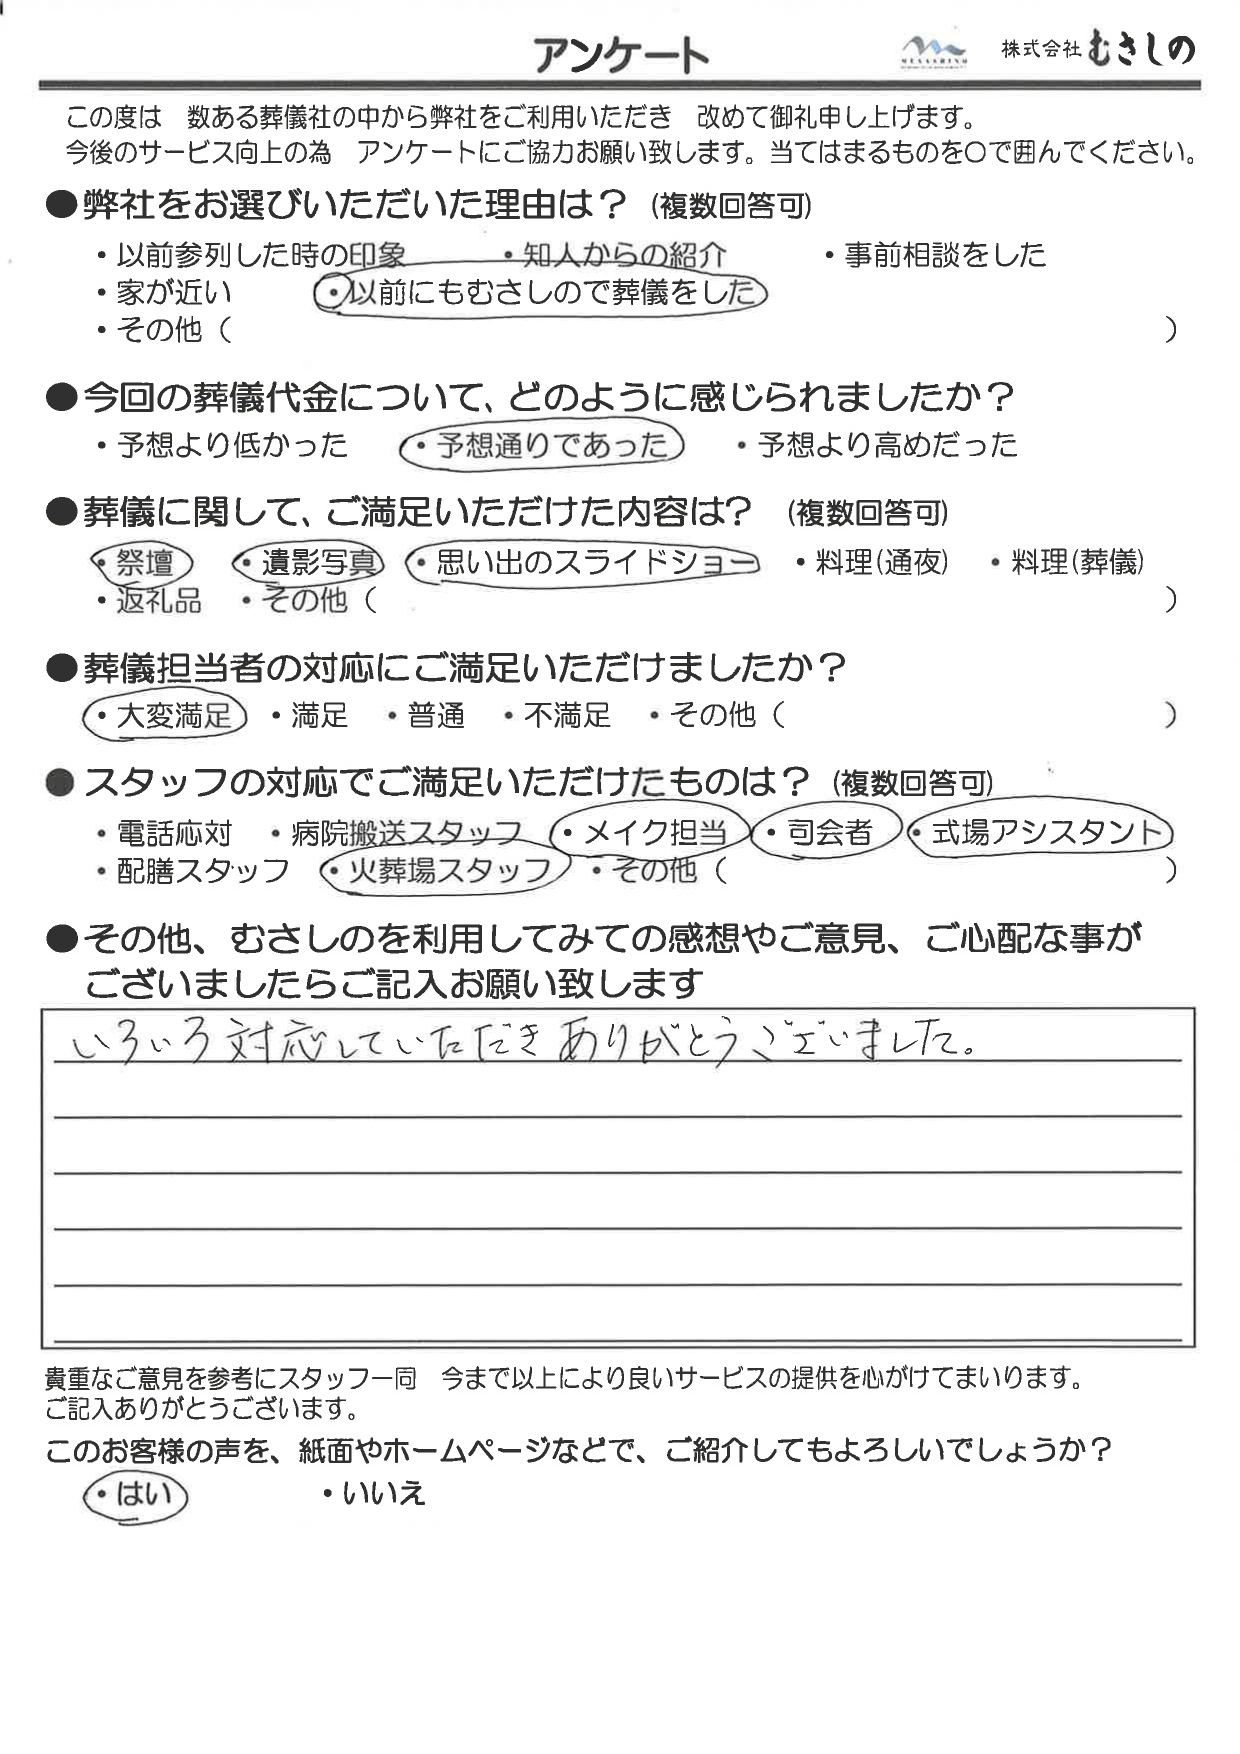 アンケート
MUSASHINO 株式会社 むさしの
この度は　数ある葬儀社の中から弊社をご利用いただき　改めて御礼申し上げます。
今後のサービス向上の為　アンケートにご協力お願い致します。当てはまるものを〇で囲んでください。
●弊社をお選びいただいた理由は？（複数回答可）
・以前参列した時の印象　・知人からの紹介　・事前相談をした
・家が近い　・以前にもむさしので葬儀をした
・その他（　）
●今回の葬儀代金について、どのように感じられましたか？
・予想より低かった　・予想通りであった　・予想より高めだった
●葬儀に関して、ご満足いただけた内容は?　（複数回答可）
・祭壇　・遺影写真　・思い出のスライドショー　・料理(通夜)　・料理(葬儀)
・返礼品　・その他（　）
●葬儀担当者の対応にご満足いただけましたか？
・大変満足　・満足　・普通　・不満足　・その他（　）
●スタッフの対応でご満足いただけたものは？（複数回答可）
・電話応対　・病院搬送スタッフ　・メイク担当　・司会者　・式場アシスタント
・配膳スタッフ　・火葬場スタッフ　・その他（　）
●その他、むさしのを利用してみての感想やご意見、ご心配な事が
ございましたらご記入お願い致します
いろいろ対応していただきありがとうございました。
貴重なご意見を参考にスタッフ一同　今まで以上により良いサービスの提供を心がけてまいります。
ご記入ありがとうございます。
このお客様の声を、紙面やホームページなどで、ご紹介してもよろしいでしょうか？
・はい　・いいえ